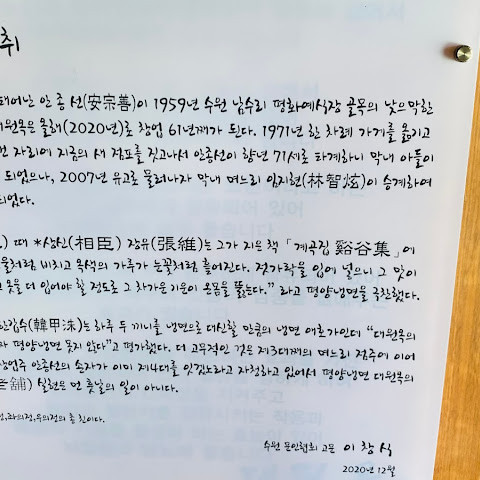 취
태어난 안종선(安宗善)이 1959년 수원 남수리 평화예식장 골목의 낮으막한
대원옥은 올해(2020년)로 창업 61년째가 된다. 1971년 한 차례 가게를 옮기고
자리에 지금의 새 점포를 짓고나서 안종선이 향년 71세로 타계하니 막내 아들이
되었으나, 2007년 유고로 물러나자 막내 며느리 임지현(林智炫)이 승계하여
되었다.
때 *상신(相臣) 장유(張維)는 그가 지은 책 「계곡집 谿谷集」에
물처럼 비치고 옥색의 가루가 눈꽃처럼 흩어진다. 젓가락을 입에 넣으니 그 맛이
옷을 더 입어야 할 정도로 그 차가운 기운이 온몸을 뚫는다." 라고 평양냉면을 극찬했다.
한갑수(韓甲洙)는 하루 두 끼니를 냉면으로 대신할 만큼의 냉면 애호가인데 "대원옥의
평양냉면 못지 않다"고 평가했다. 더 고무적인 것은 제3대째의 며느리 전주에 이어
창업주 안종선의 손자가 이미 제4대를 잇겠노라고 자청하고 있어서 평양냉면 대원옥의
老舖) 실현은 먼 훗날의 일이 아니다.
,좌의정,우의정의 총 칭이다.
수원 문인협회 고문 이 창 식
2020년 12월